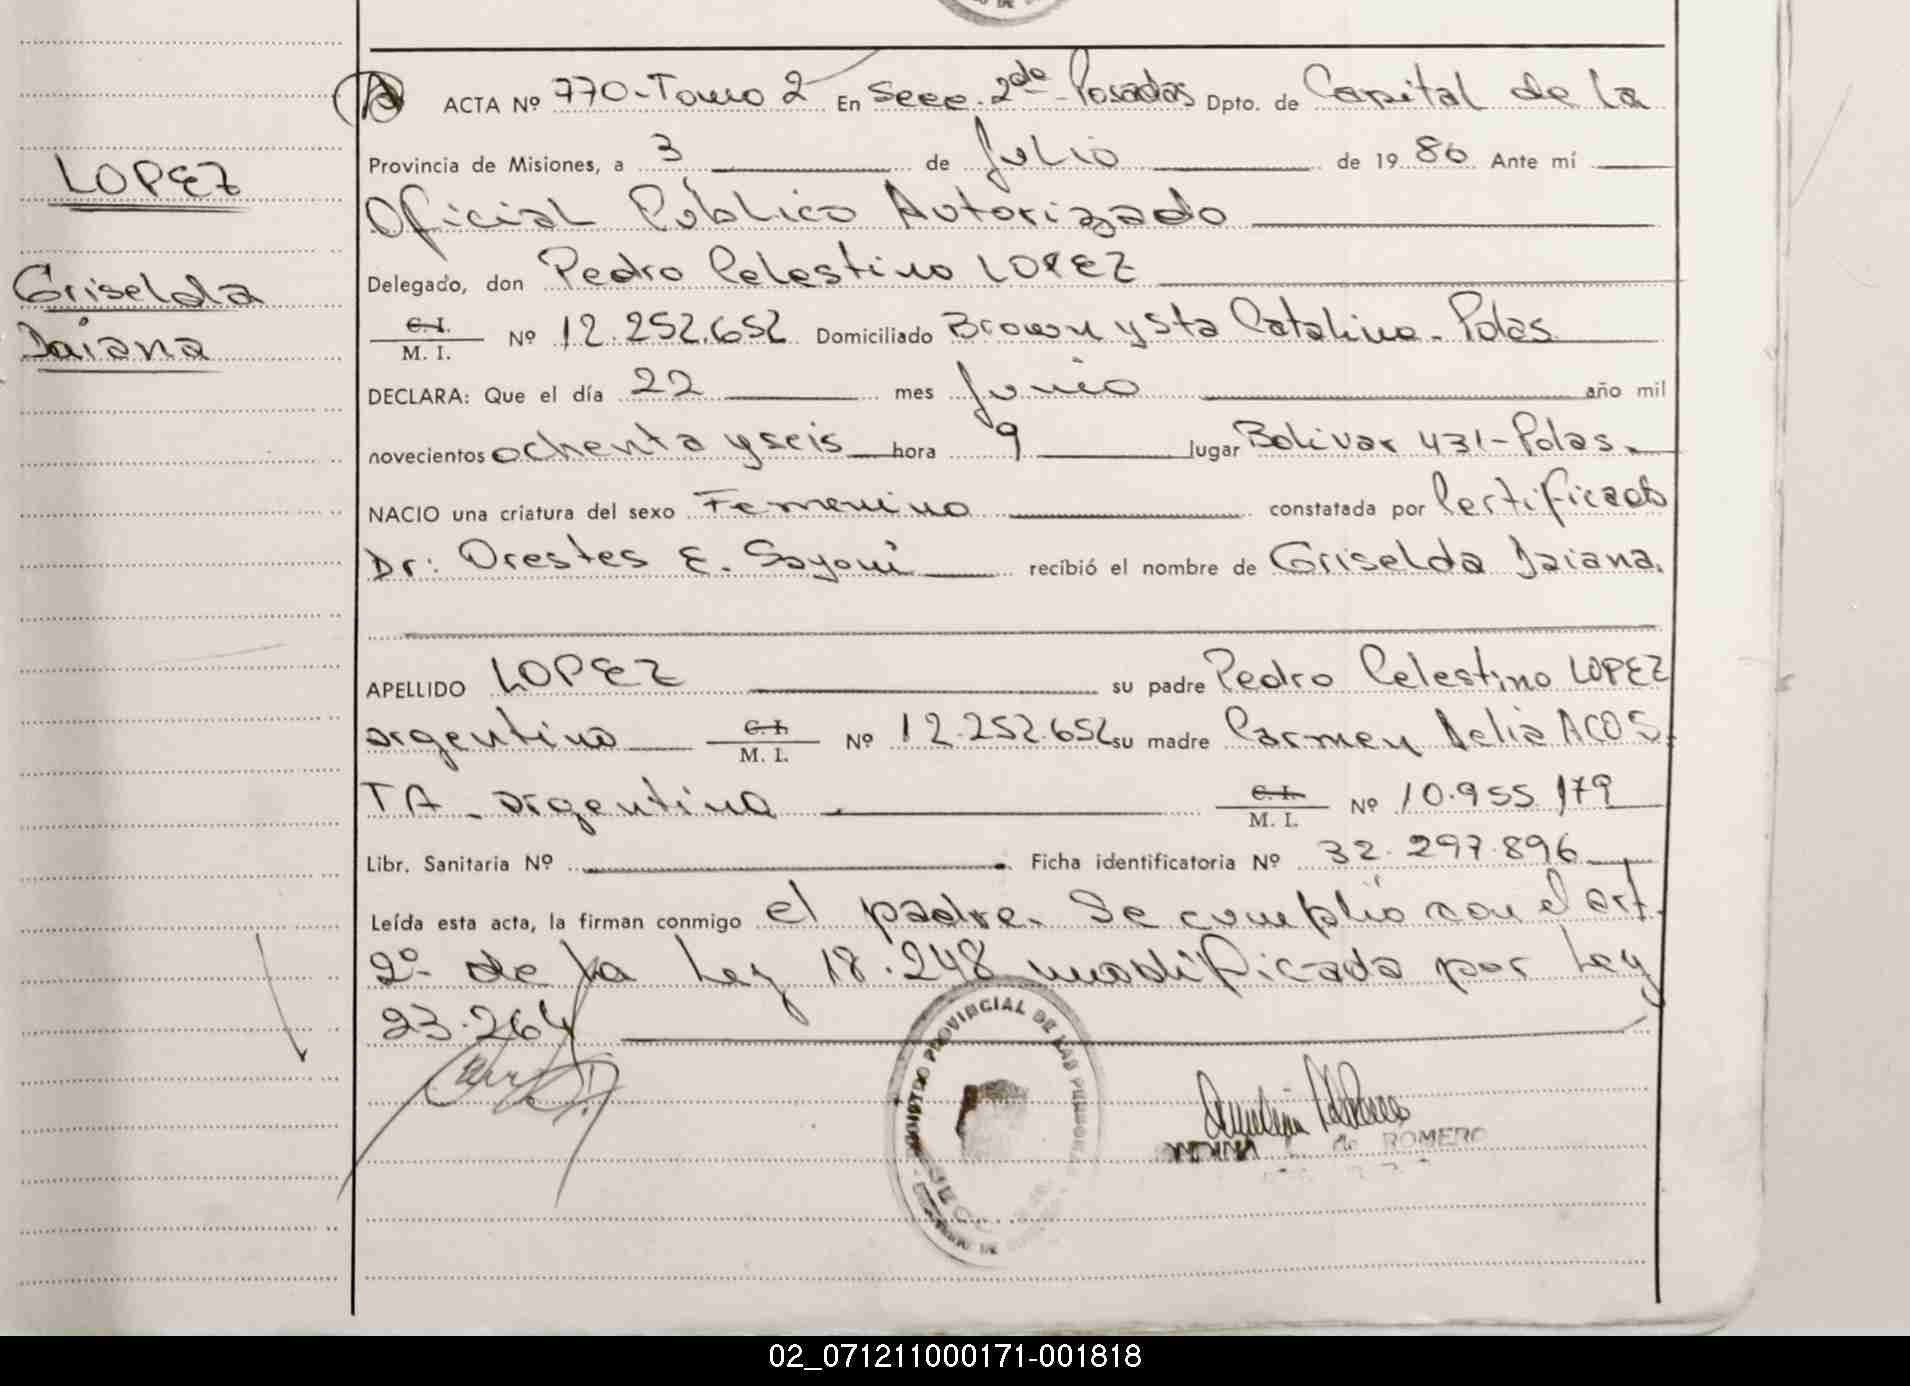 ACTA Nº 770-Tomo 2 En Secc. 2da Posadas Dpto. de Capital de la
Provincia de Misiones, a 3 de Julio de 1986 Ante mí
LOPEZ
Oficial Público Autorizado
Griselda
Delegado, don Pedro Celestino LOPEZ
Daiana
C.I. M. I. Nº 12.252.652 Domiciliado Brown y Sta Catalina - Pdas
DECLARA: Que el día 22 mes Junio año mil
novecientos ochenta y seis hora 9 lugar Bolivar 431-Pdas.
NACIO una criatura del sexo Femenino constatada por Certificado
Dr: Orestes E. recibió el nombre de Griselda Daiana.
APELLIDO LOPEZ su padre Pedro Celestino LOPEZ
argentino C.I. M. I. Nº 12.252.652 su madre Carmen Delia ACOS-
TA - argentina C.I. M. I. Nº 10.955.179
Libr. Sanitaria Nº Ficha identificatoria Nº 32.297.896
Leída esta acta, la firman conmigo el padre. Se cumplió con el art.
2º de la Ley 18.248 modificada por Ley
23.264
REGISTRO PROVINCIAL DE LAS PERSONAS
de ROMERO
02_071211000171-001818